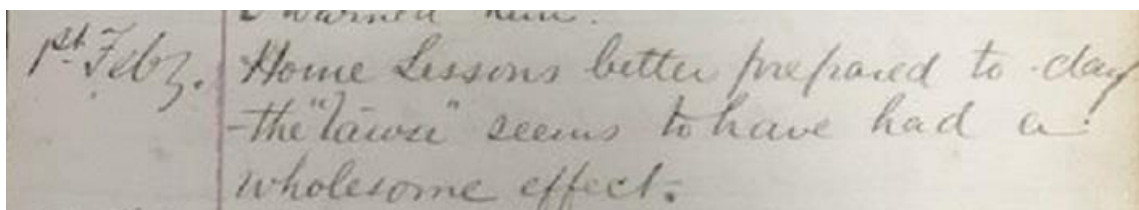 I warned him.
1st Feby. Home Lessons better prepared to-day
- the "Tawse" seems to have had a
wholesome effect.